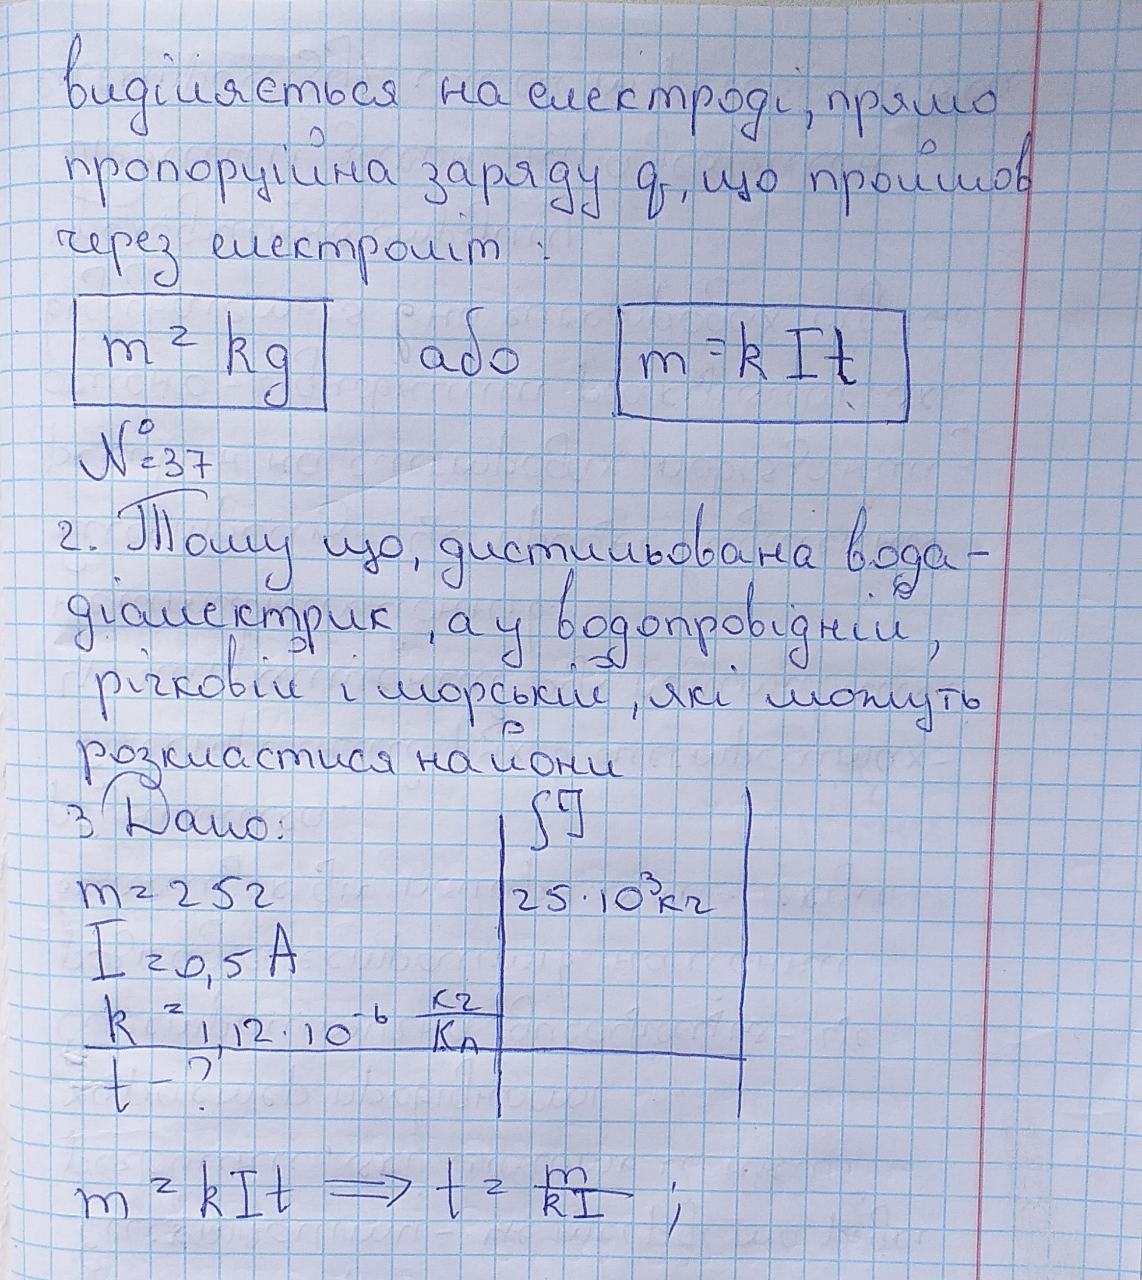 виділяється на електроді, прямо
пропорційна заряду q, що пройшов
через електроліт:
m = kq або m = kIt
№=37
2. Тому що, дистильована вода –
діалектрик, а у водопровідній,
річковій і морській, які можуть
розкластися на йони
3 Дано:
СІ
m = 25г
25·10³кг
I = 0,5 А
k = 1,12·10⁻⁶ кг/Кл
t - ?
m = kIt ⟹ t = m/kI ;